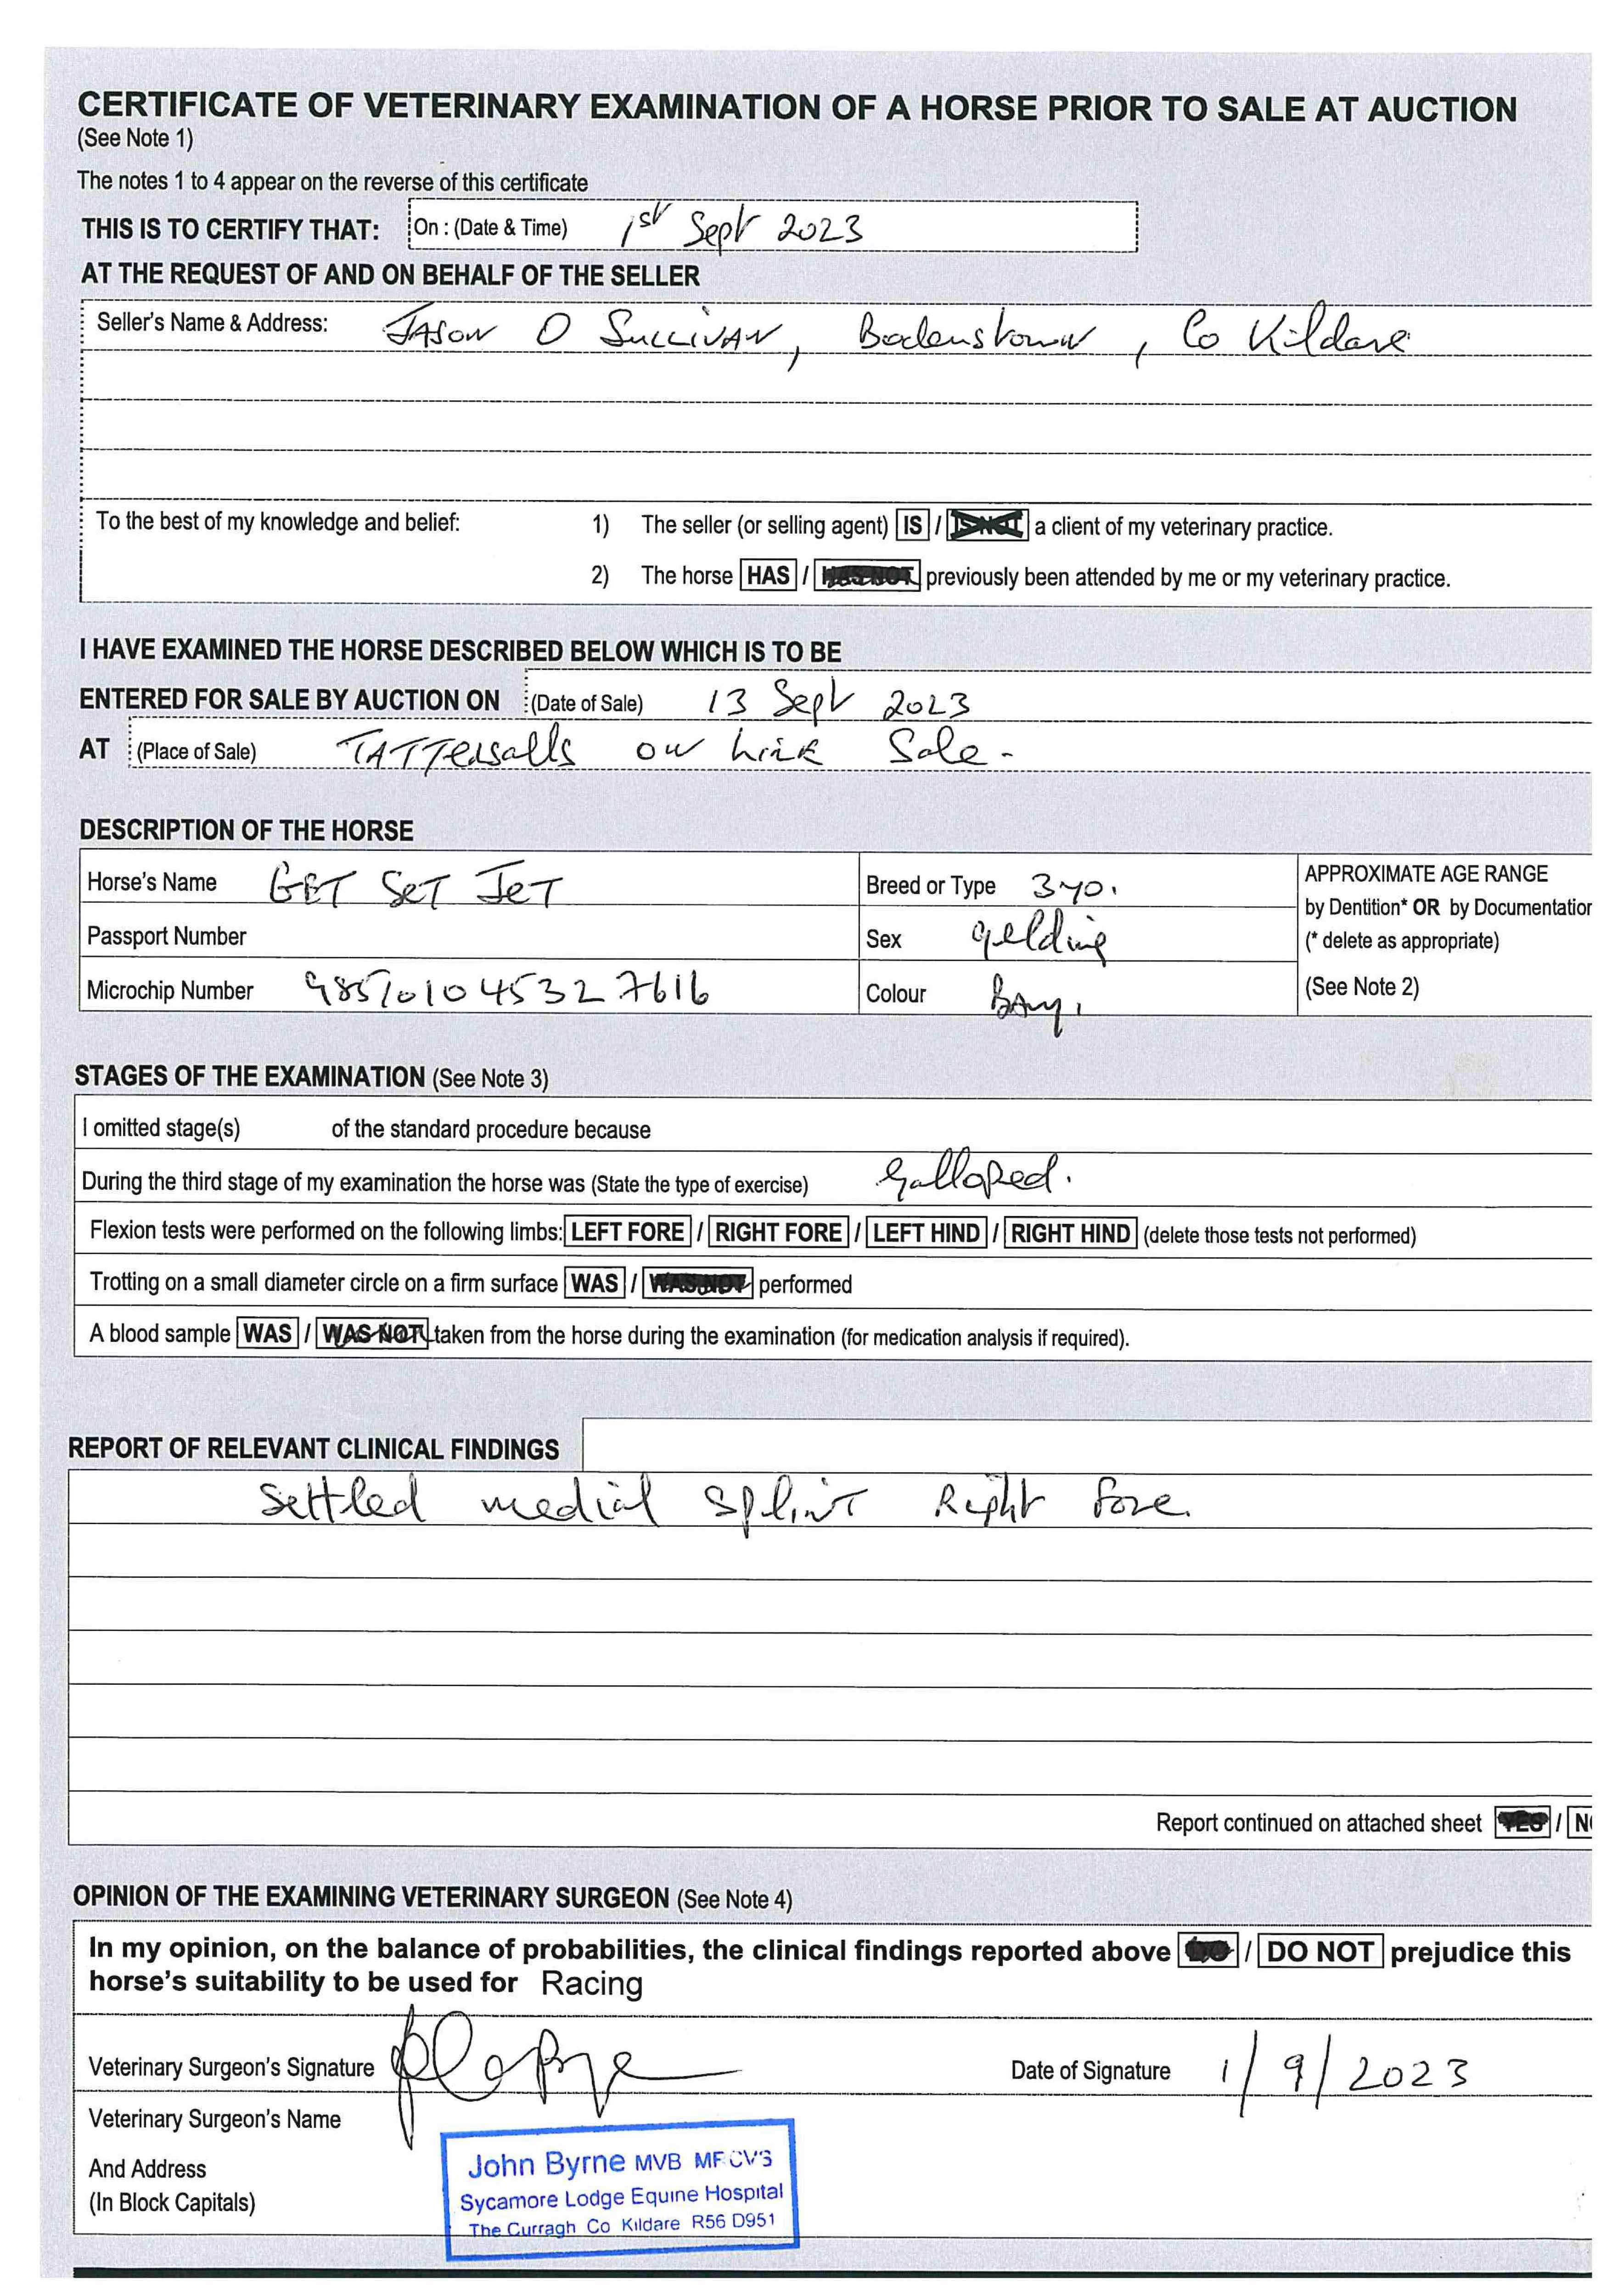 CERTIFICATE OF VETERINARY EXAMINATION OF A HORSE PRIOR TO SALE AT AUCTION
(See Note 1)
The notes 1 to 4 appear on the reverse of this certificate
THIS IS TO CERTIFY THAT: On : (Date & Time) 1st Sept 2023
AT THE REQUEST OF AND ON BEHALF OF THE SELLER
Seller's Name & Address: JASON O SULLIVAN, Bodenstown, Co Kildare
To the best of my knowledge and belief: 1) The seller (or selling agent) IS / IS NOT a client of my veterinary practice.
2) The horse HAS / HAS NOT previously been attended by me or my veterinary practice.
I HAVE EXAMINED THE HORSE DESCRIBED BELOW WHICH IS TO BE
ENTERED FOR SALE BY AUCTION ON (Date of Sale) 13 Sept 2023
AT (Place of Sale) TATTersalls ON LINE Sale -
DESCRIPTION OF THE HORSE
Horse's Name GET SET JET Breed or Type 3yo. APPROXIMATE AGE RANGE
by Dentition* OR by Documentation
Passport Number Sex gelding (* delete as appropriate)
Microchip Number 985101045327616 Colour BAy. (See Note 2)
STAGES OF THE EXAMINATION (See Note 3)
I omitted stage(s) of the standard procedure because
During the third stage of my examination the horse was (State the type of exercise) Galloped.
Flexion tests were performed on the following limbs: LEFT FORE / RIGHT FORE / LEFT HIND / RIGHT HIND (delete those tests not performed)
Trotting on a small diameter circle on a firm surface WAS / WAS NOT performed
A blood sample WAS / WAS NOT taken from the horse during the examination (for medication analysis if required).
REPORT OF RELEVANT CLINICAL FINDINGS
Settled medial splint Right fore.
Report continued on attached sheet YES / N
OPINION OF THE EXAMINING VETERINARY SURGEON (See Note 4)
In my opinion, on the balance of probabilities, the clinical findings reported above DO / DO NOT prejudice this
horse's suitability to be used for Racing
Veterinary Surgeon's Signature Date of Signature 1/9/2023
Veterinary Surgeon's Name
And Address
(In Block Capitals)
John Byrne MVB MRCVS
Sycamore Lodge Equine Hospital
The Curragh Co Kildare R56 D951